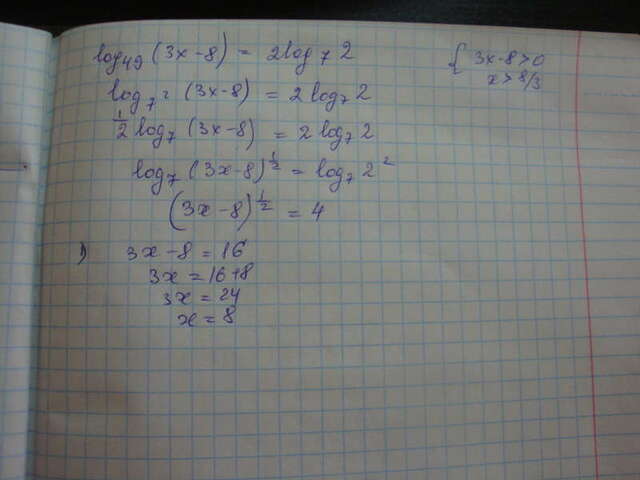 log₄₉ (3x-8) = 2log₇ 2
{ 3x-8>0
x > 8/3
log₇² (3x-8) = 2 log₇ 2
½ log₇ (3x-8) = 2 log₇ 2
log₇ (3x-8)^½ = log₇ 2²
(3x-8)^½ = 4
1) 3x-8 = 16
3x = 16+8
3x = 24
x = 8